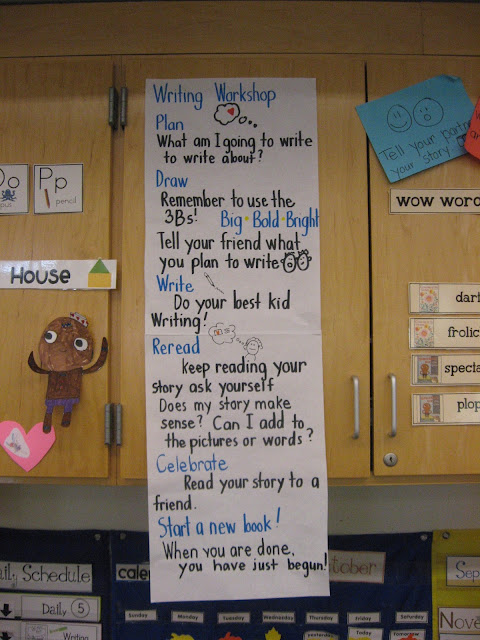 Writing Workshop
Plan
What am I going to write
to write about?
Draw
Remember to use the
3Bs! Big • Bold • Bright
Tell your friend what
you plan to write
Write
Do your best kid
Writing!
Reread
keep reading your
story ask yourself
Does my story make
sense? Can I add to
the pictures or words?
Celebrate
Read your story to a
friend.
Start a new book!
When you are done,
you have just begun!
Tell your
your story
wow
Pp
pencil
House
special
Schedule
Daily 5
Writing
Sunday
Monday
Tuesday
Wednesday
Thursday
Friday
Saturday
yesterday
Today